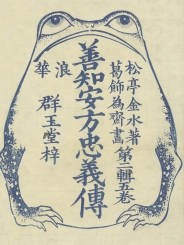 松亭金水著
葛飾為齋畫
第二輯五巻
善知安方忠義傳
浪華
群玉堂梓